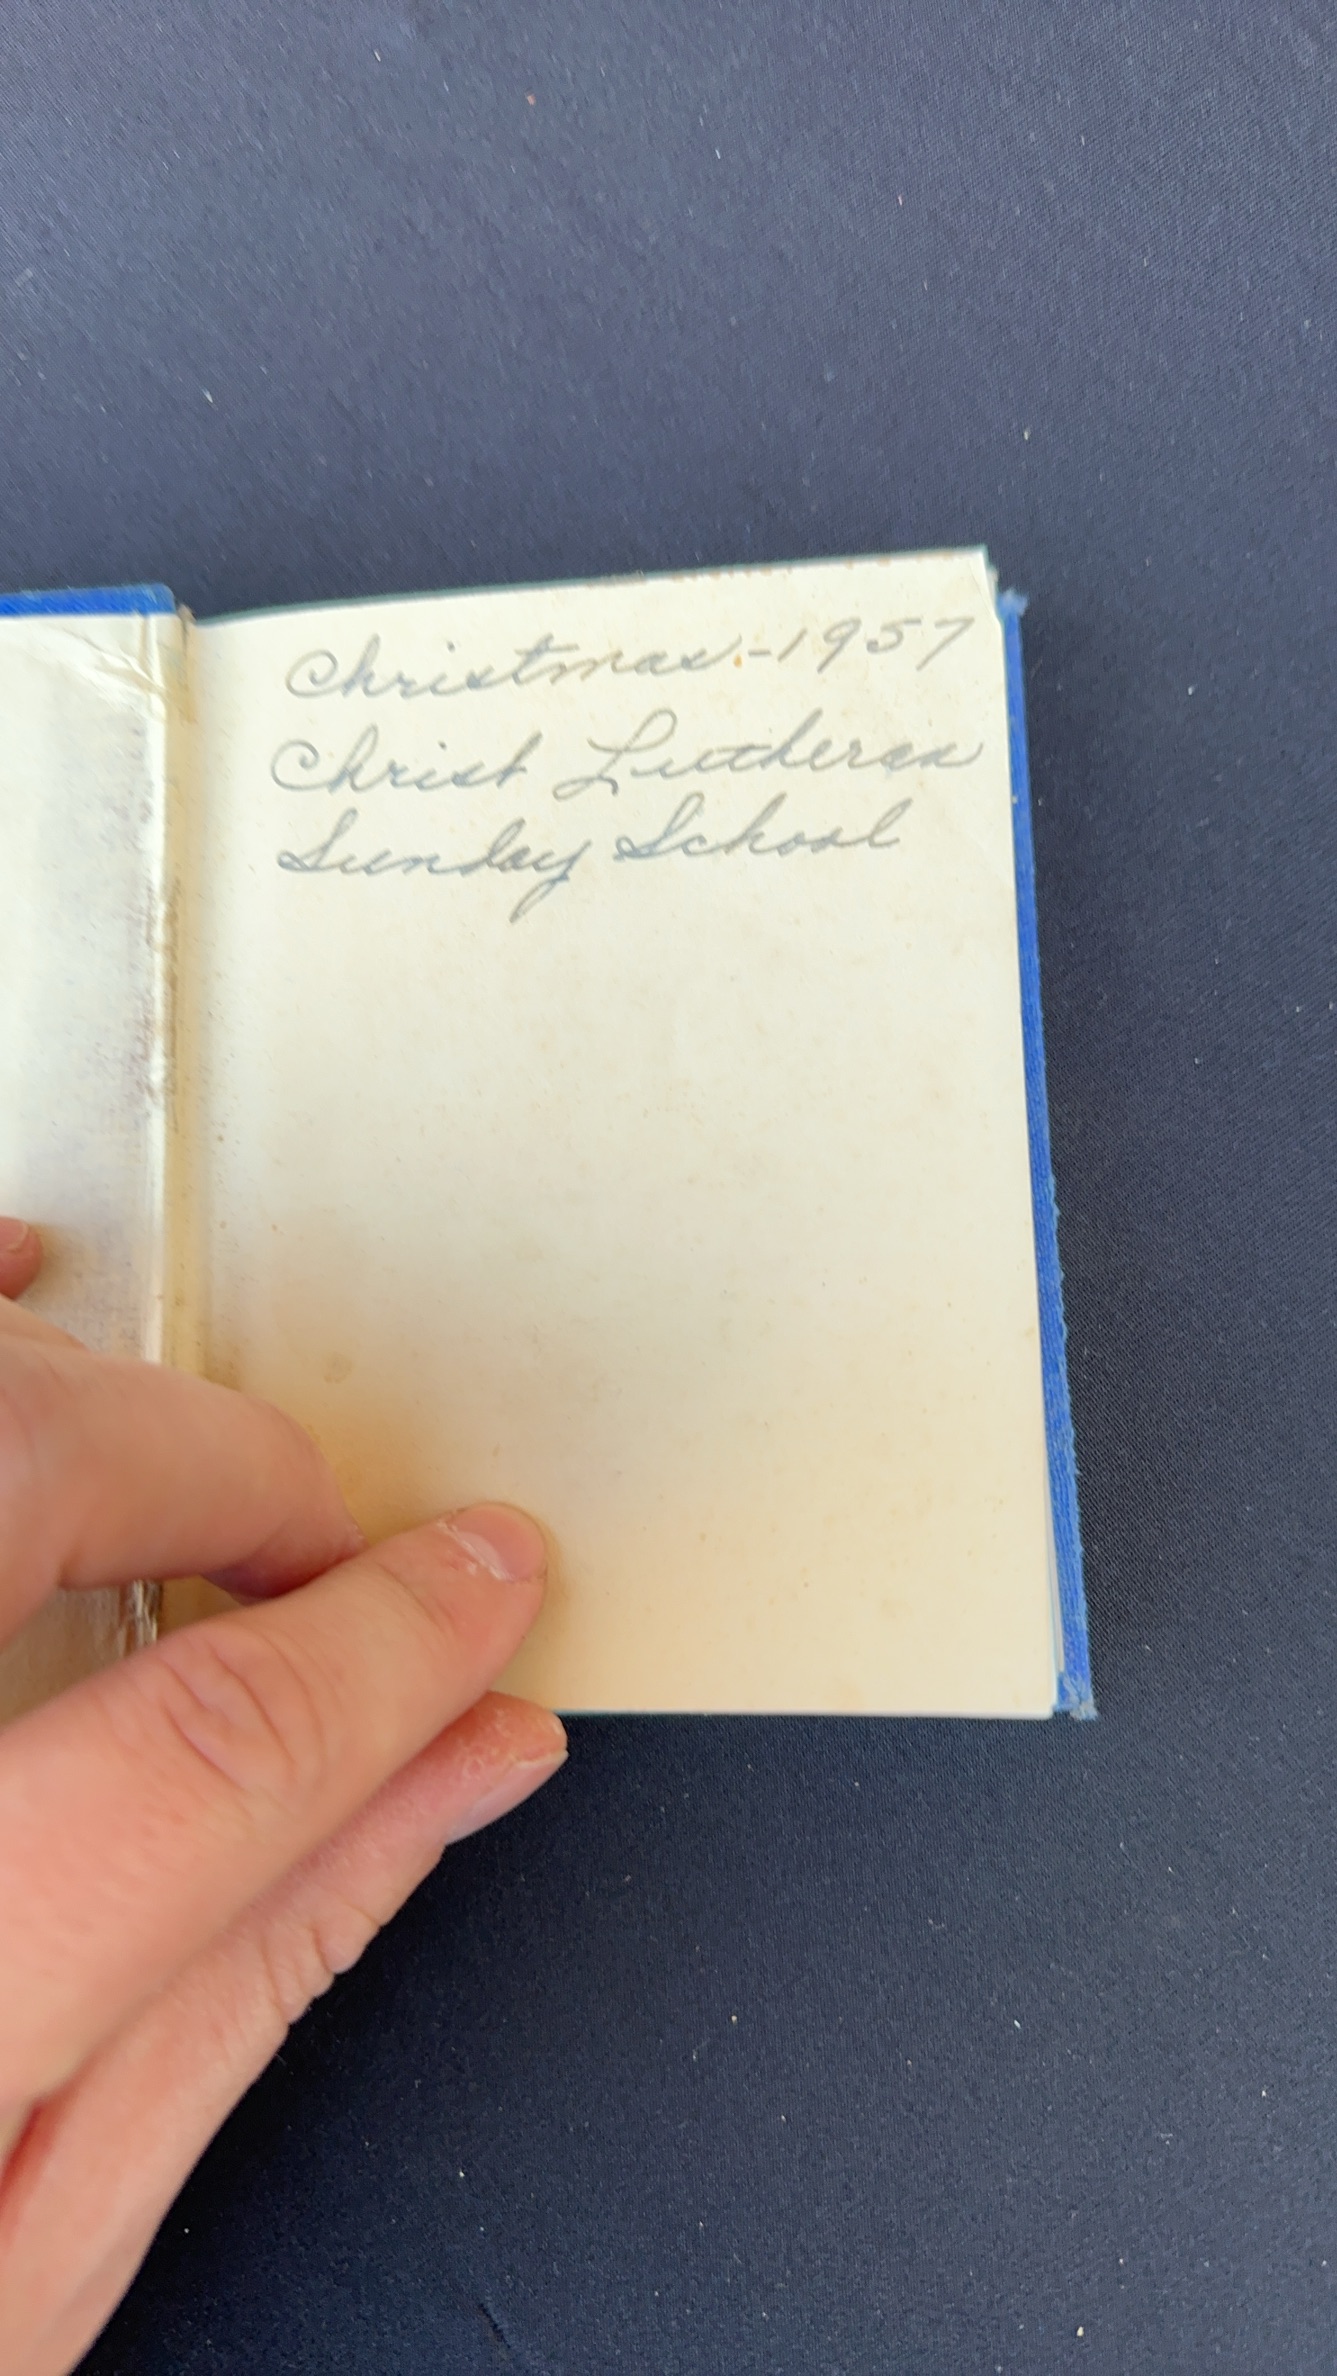 Christmas - 1957
Christ Lutheran
Sunday School